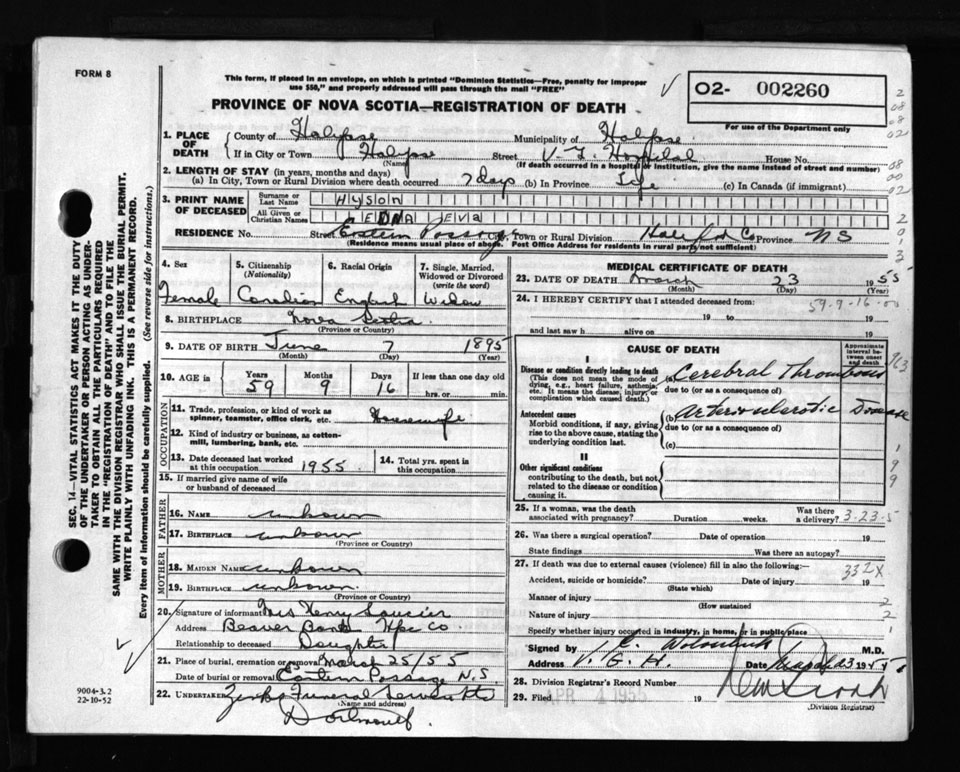 FORM 8
This form, if placed in an envelope, on which is printed "Dominion Statistics—Free, penalty for improper
use $50," and properly addressed will pass through the mail "FREE"
PROVINCE OF NOVA SCOTIA—REGISTRATION OF DEATH
O2- 002260
For use of the Department only
1. PLACE OF DEATH
County of Halifax Municipality of Halifax
If in City or Town Halifax Street V. G. Hospital House No.
(Name) (If death occurred in a hospital or institution, give the name instead of street and number)
2. LENGTH OF STAY (in years, months and days)
(a) In City, Town or Rural Division where death occurred 7 days (b) In Province Life (c) In Canada (if immigrant)
3. PRINT NAME OF DECEASED
Surname or Last Name HYSON
All Given or Christian Names EDNA EVA
RESIDENCE No. Street Eastern Passage City, Town or Rural Division Halifax Co Province NS
(Residence means usual place of abode. Post Office Address for residents in rural parts not sufficient)
4. Sex
Female
5. Citizenship (Nationality)
Canadian
6. Racial Origin
English
7. Single, Married, Widowed or Divorced (write the word)
Widow
8. BIRTHPLACE Nova Scotia
(Province or Country)
9. DATE OF BIRTH June 7 1895
(Month) (Day) (Year)
10. AGE in Years Months Days If less than one day old
59 9 16 hrs. or min.
OCCUPATION
11. Trade, profession, or kind of work as
spinner, teamster, office clerk, etc. Housewife
12. Kind of industry or business, as cotton-
mill, lumbering, bank, etc.
13. Date deceased last worked
at this occupation 1955
14. Total yrs. spent in
this occupation
15. If married give name of wife
or husband of deceased
FATHER
16. NAME unknown
17. BIRTHPLACE unknown
(Province or Country)
MOTHER
18. MAIDEN NAME unknown
19. BIRTHPLACE unknown
(Province or Country)
20. Signature of informant Mrs Henry
Address Beaver Bank Hfx Co.
Relationship to deceased Daughter
21. Place of burial, cremation or removal March 25/55
Date of burial or removal Eastern Passage N.S.
22. UNDERTAKER Funeral Service
(Name and address)
Dartmouth
MEDICAL CERTIFICATE OF DEATH
23. DATE OF DEATH March 23 1955
(Month) (Day) (Year)
24. I HEREBY CERTIFY that I attended deceased from:
59-9-16-00
19 to 19
and last saw h alive on 19
CAUSE OF DEATH
Approximate interval between onset and death
I
Disease or condition directly leading to death
(This does not mean the mode of dying, e.g., heart failure, asthenia, etc. It means the disease, injury, or complication which caused death.)
(a) Cerebral Thrombosis
due to (or as a consequence of)
Antecedent causes
Morbid conditions, if any, giving rise to the above cause, stating the underlying condition last.
(b) Arteriosclerotic Disease
due to (or as a consequence of)
(c)
II
Other significant conditions
contributing to the death, but not related to the disease or condition causing it.
25. If a woman, was the death
associated with pregnancy? Duration weeks. Was there
a delivery? 3-23-5
26. Was there a surgical operation? Date of operation 19
State findings Was there an autopsy?
27. If death was due to external causes (violence) fill in also the following:—
332X
Accident, suicide or homicide? Date of injury 19
(State which)
Manner of injury
(How sustained)
Nature of injury
Specify whether injury occurred in industry, in home, or in public place
Signed by M.D.
Address V. G. H. Date March 23 1955
28. Division Registrar's Record Number
29. Filed APR 4 1955 19
(Division Registrar)
SEC. 14—VITAL STATISTICS ACT MAKES IT THE DUTY
OF THE UNDERTAKER OR PERSON ACTING AS UNDER-
TAKER TO OBTAIN ALL THE PARTICULARS REQUIRED
IN THE "REGISTRATION OF DEATH" AND TO FILE THE
SAME WITH THE DIVISION REGISTRAR WHO SHALL ISSUE THE BURIAL PERMIT.
WRITE PLAINLY WITH UNFADING INK. THIS IS A PERMANENT RECORD.
Every item of information should be carefully supplied. (See reverse side for instructions.)
9004-3.2
22-10-52